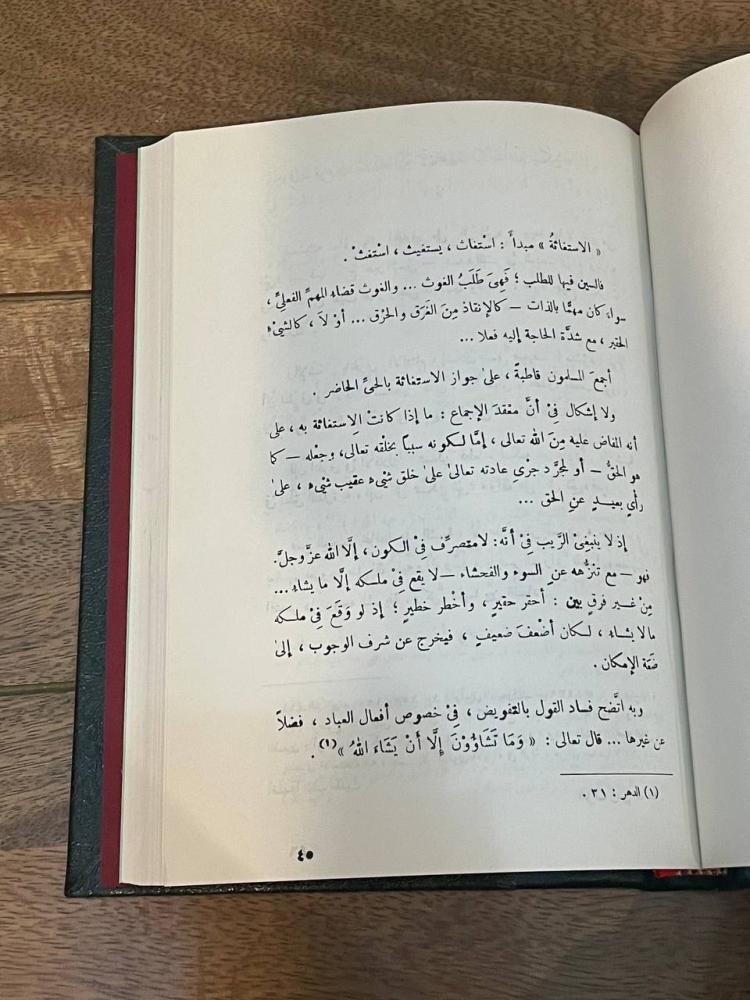 « الاستغاثةُ » مبدأً : اسْتغاث ، يستغيث ، اسْتغثْ .
فالسين فيها للطلب ؛ فَهِيَ طَلَبُ الغوث ... والغوث قضاء المهمِّ الفعليِّ ،
سواء كان مهمًّا بالذات – كالإنقاذ مِنَ الغَرَق والحرْق ... أوْ لاَ ، كالشيْء
الحقير ، مع شدَّة الحاجة إليه فعلا ...
أجمعَ المسلمون قاطبةً ، علىٰ جواز الاستغاثة بالحيِّ الحاضر .
ولا إشكال فِيْ أنَّ معْقدَ الإجماع : ما إذا كانتْ الاستغاثة به ، على
أنه المفاض عليه مِنَ الله تعالى ، إمَّا لكونه سبباً بخلْقه تعالَى، وجعْله – كما
هو الحقُّ – أو لمجرَّد جرْيِ عادته تعالىٰ علىٰ خلق شيْء عقيب شيْء ، علىٰ
رأْيٍ بعيـدٍ عنِ الحق ...
إذ لا ينبغيْ الرَّيب فِيْ أنَّه: لا متصرِّف فِيْ الكون، إلَّا الله عزَّ وجلَّ.
فهو – مع تنزُّهه عنِ السوء والفحشاء – لا يقع فِيْ ملكه إلَّا ما يشاء ...
مِنْ غير فرقٍ بين : أحقر حقيرٍ ، وأخْطر خطيرٍ ؛ إذ لو وَقَعَ فِيْ ملكه
مالا يشاء ، لكان أضْعفَ ضعيفٍ ، فيخرج عن شرف الوجوب ، إلىٰ
ضَعَة الإمكان .
وبه اتَّضح فساد القول بالتفويض ، فِيْ خصوص أفعال العباد ، فضلاً
عن غيرها ... قال تعالى : « وَمَا تَشَاؤُوْنَ إلَّا أَنْ يَشَاءَ اللهُ » (١) .
(١) الدهر : ٣١ .
٤٥